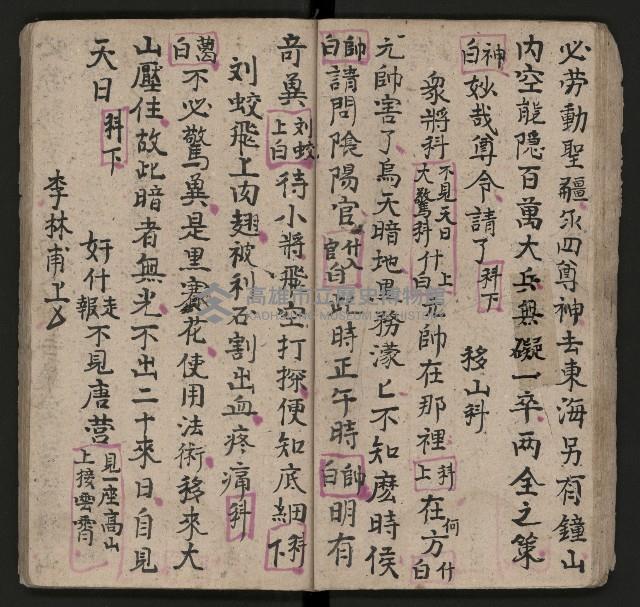 必劳動聖疆永四尊神去東海另有鐘山
内空能隠百萬大兵無礙一卒両全之策
神白 妙哉尊令請了 科下 移山科
衆將科 不見天日上大驚科 什白 元帥在那裡 科上 在何方 什白
元帥害了烏天暗地黑務濛匕不知庅時侯
帥白 請問陰陽官 什入官白 時正午時 帥白 明有
奇冀 刘蛟上白 待小將飛空打探便知底細 科下
刘蛟飛上肉翅被利石割出血疼痛 科
萬白 不必驚冀是黑賽花使用法術移來大
山壓住故此暗者無光不出二十來日自見
天日 科下 奸什走報不見唐营 見一座高山上接雲霄
李林甫上
高雄市立歷史博物館
KAOHSIUNG MUSEUM OF HISTORY